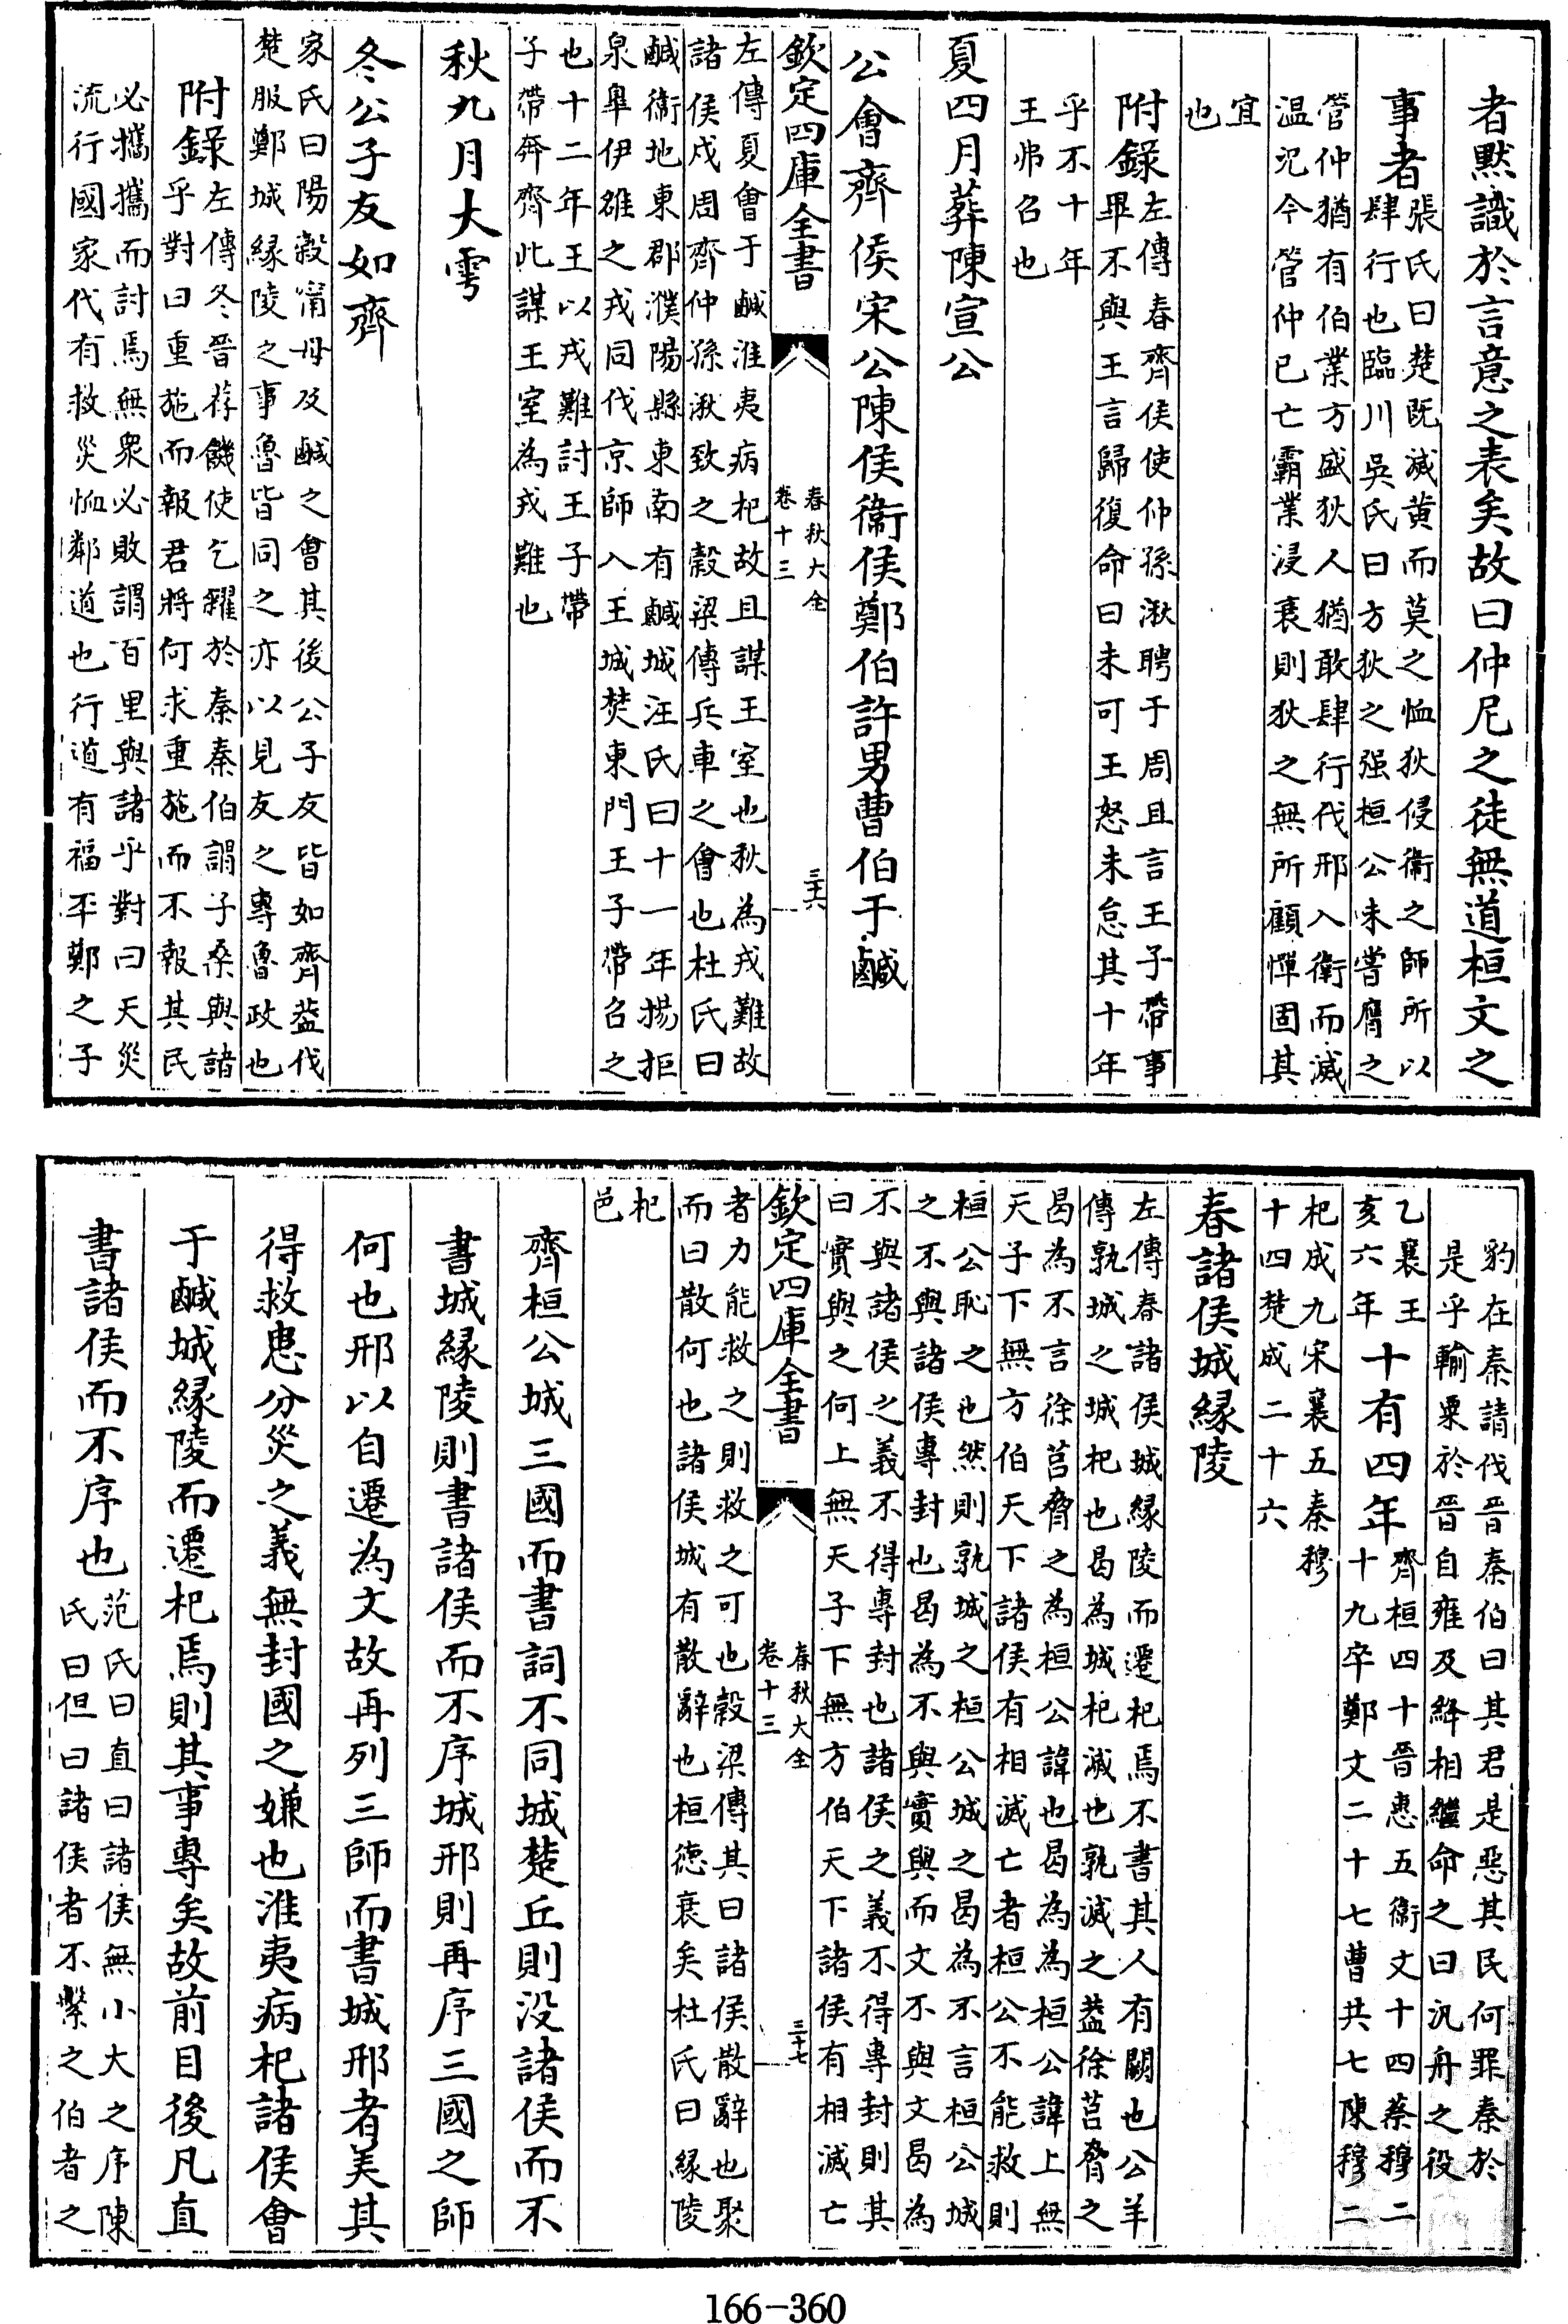 者黙識於言意之表矣故曰仲尼之徒無道桓文之
事者
張氏曰楚既滅黄而莫之恤狄侵衛之師所以
肆行也臨川吳氏曰方狄之强桓公未嘗膺之
管仲猶有伯業方盛狄人猶敢肆行伐邢入衛而滅
温况今管仲已亡霸業浸衰則狄之無所顧憚固其
宜
也
附錄
左傳春齊侯使仲孫湫聘于周且言王子帶事
畢不與王言歸復命曰未可王怒未怠其十年
乎不十年
王弗召也
夏四月葬陳宣公
公會齊侯宋公陳侯衞侯鄭伯許男曹伯于鹹
欽定四庫全書
春秋大全
卷十三
三六
左傳夏會于鹹淮夷病杞故且謀王室也秋為戎難故
諸侯戍周齊仲孫湫致之穀梁傳兵車之會也杜氏曰
鹹衞地東郡濮陽縣東南有鹹城汪氏曰十一年揚拒
泉臯伊雒之戎同伐京師入王城焚東門王子帶召之
也十二年王以戎難討王子帶
子帶奔齊此謀王室為戎難也
秋九月大雩
冬公子友如齊
家氏曰陽穀甯母及鹹之會其後公子友皆如齊葢伐
楚服鄭城緣陵之事魯皆同之亦以見友之專魯政也
附錄
左傳冬晉荐饑使乞糴於秦秦伯謂子桑與諸
乎對曰重施而報君將何求重施而不報其民
必攜攜而討焉無衆必敗謂百里與諸乎對曰天災
流行國家代有救災恤鄰道也行道有福丕鄭之子
豹在秦請伐晉秦伯曰其君是惡其民何罪秦於
是乎輸粟於晉自雍及絳相繼命之曰汎舟之役
乙襄王
亥六年
十有四年
齊桓四十晉惠五衞文十四蔡穆二
十九卒鄭文二十七曹共七陳穆二
杞成九宋襄五秦穆
十四楚成二十六
春諸侯城緣陵
左傳春諸侯城緣陵而遷杞焉不書其人有闕也公羊
傳孰城之城杞也曷為城杞滅也孰滅之葢徐莒脅之
曷為不言徐莒脅之為桓公諱也曷為為桓公諱上無
天子下無方伯天下諸侯有相滅亡者桓公不能救則
桓公恥之也然則孰城之桓公城之曷為不言桓公城
之不與諸侯專封也曷為不與實與而文不與文曷為
不與諸侯之義不得專封也諸侯之義不得專封則其
曰實與之何上無天子下無方伯天下諸侯有相滅亡
欽定四庫全書
春秋大全
卷十三
三十七
者力能救之則救之可也穀梁傳其曰諸侯散辭也聚
而曰散何也諸侯城有散辭也桓德衰矣杜氏曰緣陵
杞
邑
齊桓公城三國而書詞不同城楚丘則没諸侯而不
書城緣陵則書諸侯而不序城邢則再序三國之師
何也邢以自遷為文故再列三師而書城邢者美其
得救患分災之義無封國之嫌也淮夷病杞諸侯會
于鹹城緣陵而遷杞焉則其事專矣故前目後凡直
書諸侯而不序也
范氏曰直曰諸侯無小大之序陳
氏曰但曰諸侯者不繫之伯者之
166-360